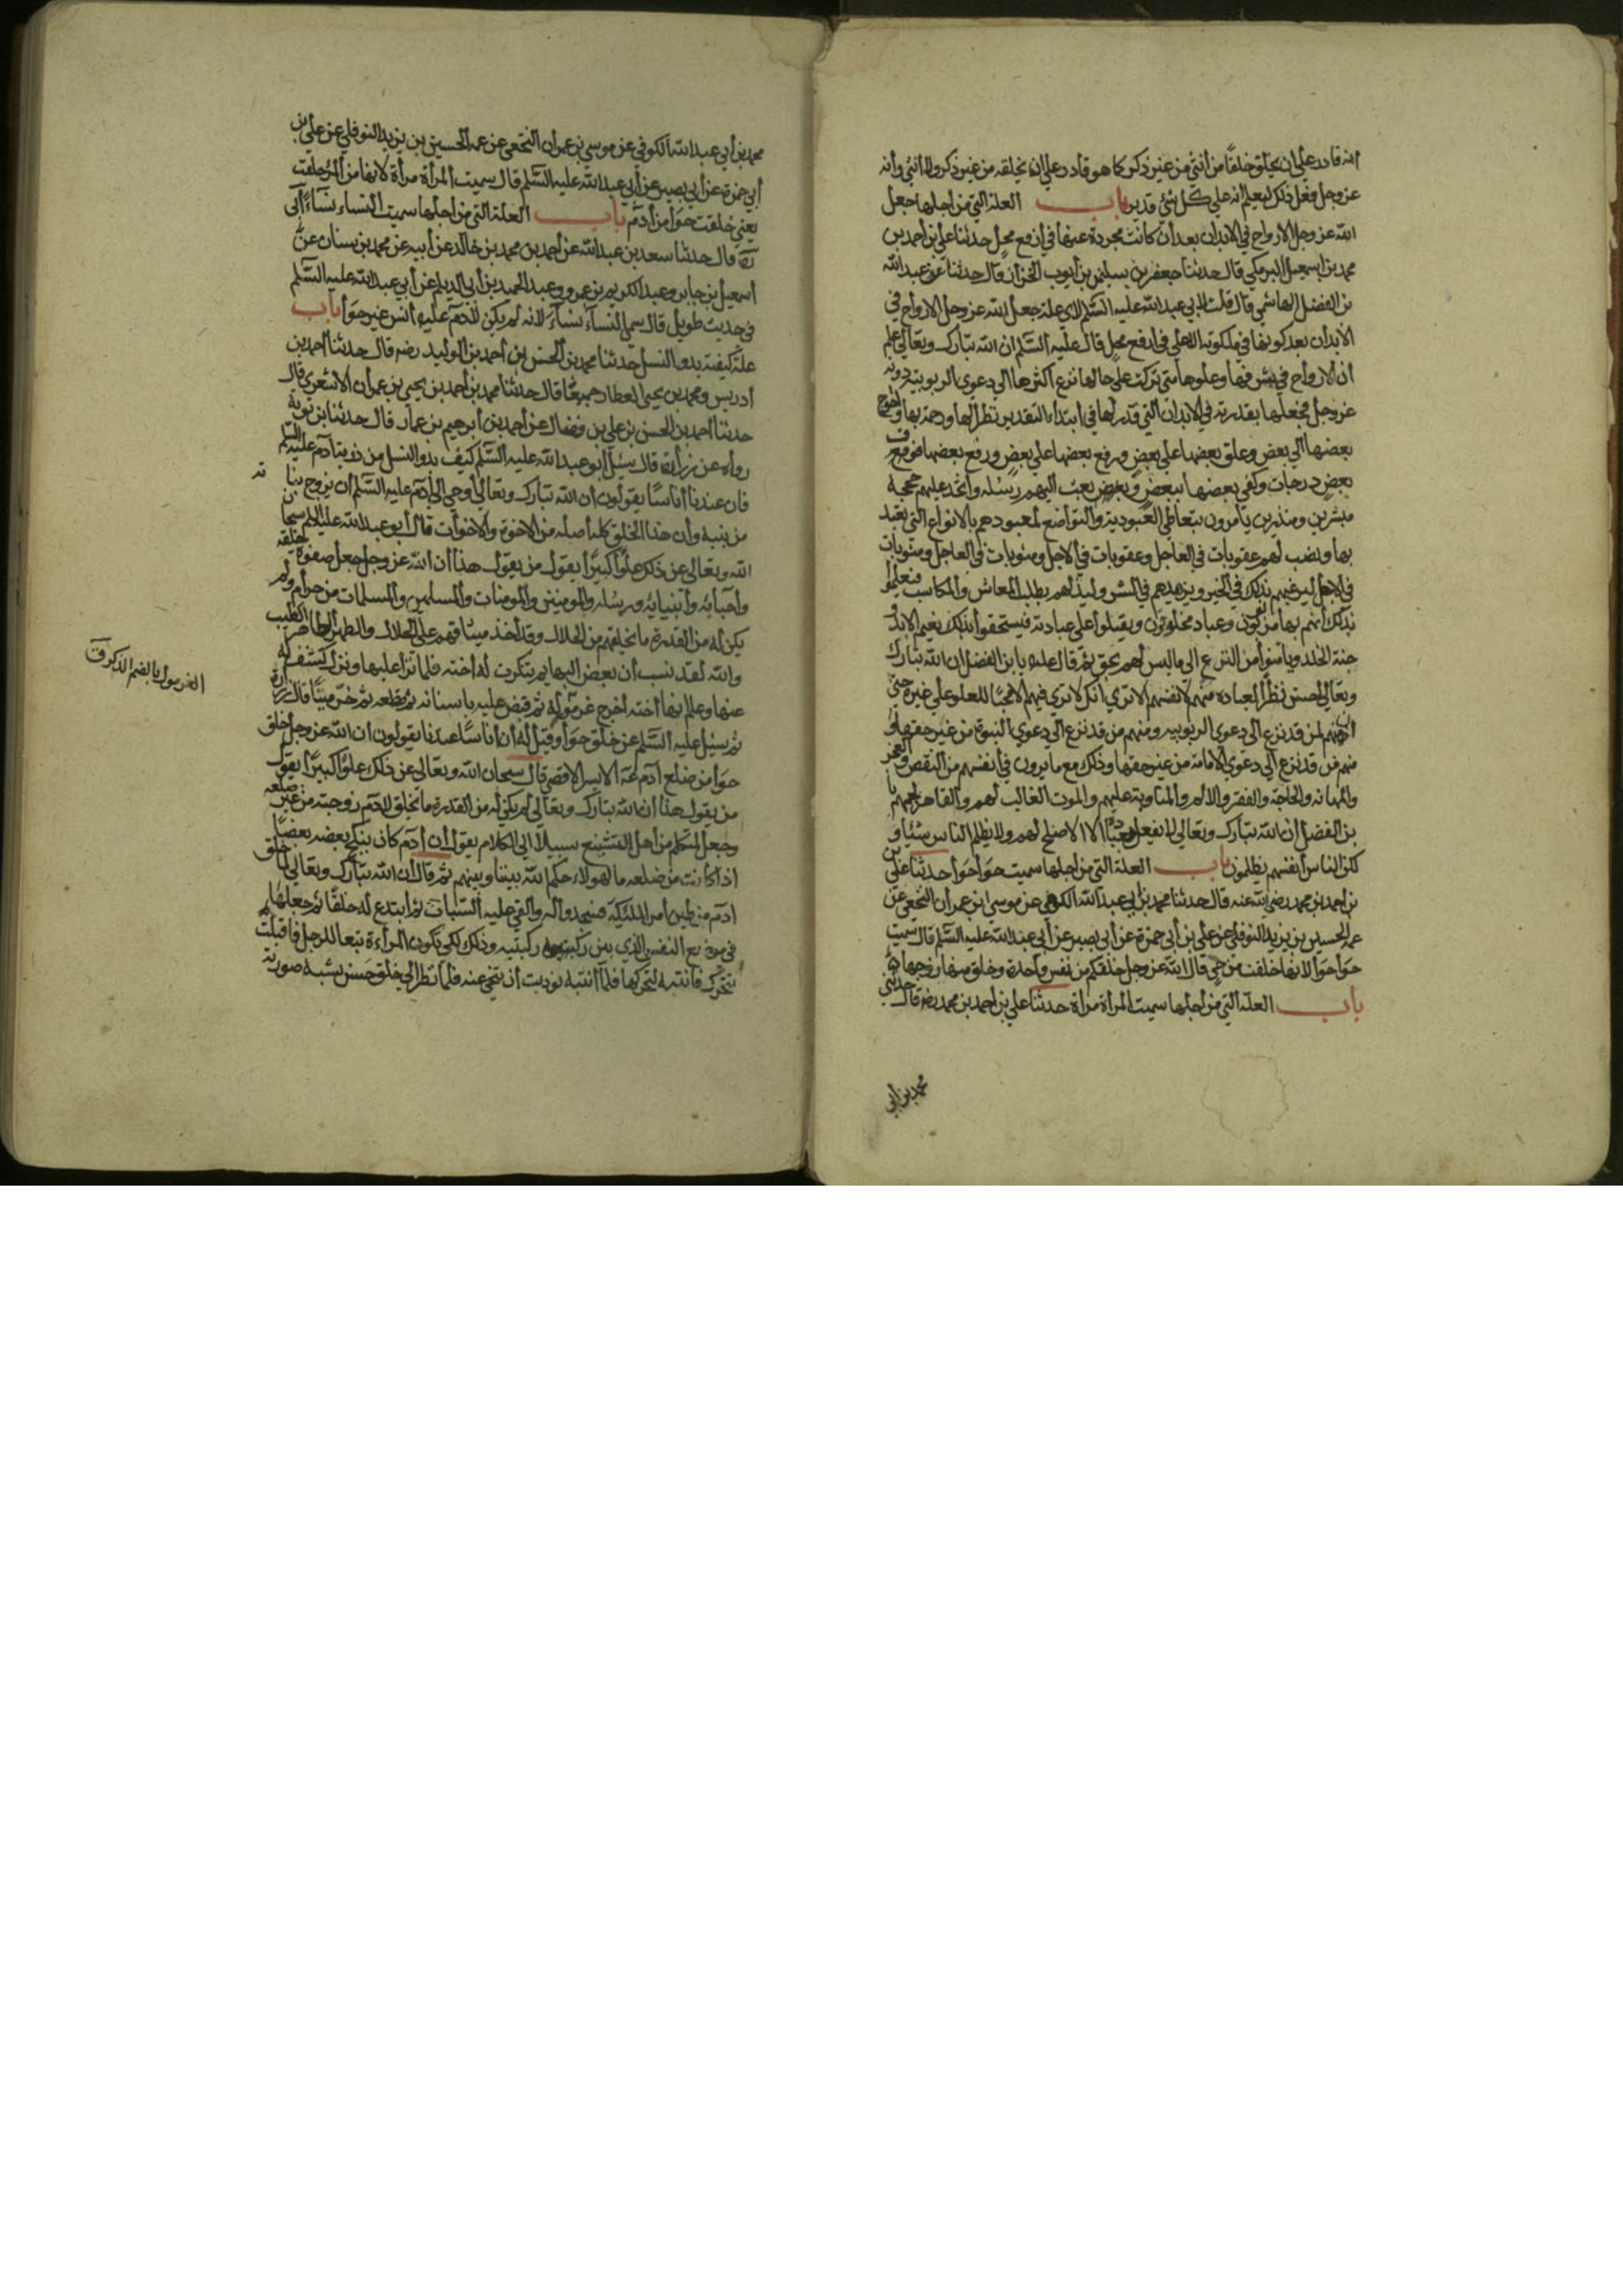 انه قادر علي ان يخلق خلقا من أنثي من غير ذكر كما هو قادر علي ان يخلقه من غير ذكر ولا انثي وأنه
عز وجل فعل ذلك ليعلم انه علي كل شئ قدير باب العلة التي من اجلها جعل
الله عز وجل الارواح في الابدان بعد أن كانت مجردة عنها في ارفع محل حدثنا علي بن احمد بن
محمد بن اسمعيل البرمكي قال حدثنا جعفر بن سليمن بن ايوب الخزاز قال حدثنا عبد الله
بن الفضل الهاشمي قال قلت لابي عبد الله عليه السلم لاي علة جعل الله عز وجل الارواح في
الابدان بعد كونها في ملكوته الاعلي في ارفع محل قال عليه السلم ان الله تبارك وتعالي علم
ان الارواح في شرفها وعلوها متي تركت علي حالها نزع اكثرها الي دعوي الربوبية دونه
عز وجل فجعلها بقدرته في الابدان التي قدر لها في ابتداء التقدير نظرا لها ورحمة بها واحوج
بعضها الي بعض وعلق بعضها علي بعض ورفع بعضها علي بعض ورفع بعضها فوق
بعض درجات وكفي بعضها ببعض وبعث اليهم رسله واتخذ عليهم حججه
مبشرين ومنذرين يأمرون بتعاطي العبودية والتواضع لمعبودهم بالانواع التي تعبد
بها ونصب لهم عقوبات في العاجل وعقوبات في الاجل ومثوبات في العاجل ومثوبات
في الاجل ليرغبهم بذلك في الخير ويزهدهم في الشر وليذلهم بطلب المعاش والمكاسب فيعلموا
بذلك أنهم بها مربوبون وعباد مخلوقون ويقبلوا علي عبادته فيستحقوا بذلك نعيم الابد و
جنة الخلد ويأمنوا من النزع الي ما ليس لهم بحق ثم قال عليه يا بن الفضل ان الله تبارك
وتعالي احسن نظرا لعباده منهم لانفسهم الا تري انك لا تري فيهم الا محبا للعلو علي غيره حتي
ان منهم لمن قد نزع الي دعوي الربوبيه ومنهم من قد نزع الي دعوي النبوة من غير حقها و
منهم من قد نزع الي دعوي الامامة من غير حقها وذلك مع ما يرون في أنفسهم من النقص والعجز
والمهانه والحاجة والفقر والالام والمناوبة عليهم والموت الغالب لهم والقاهر لجمعهم يا
بن الفضل ان الله تبارك وتعالي لا يفعل بعباده الا الاصلح لهم ولا يظلم الناس شيئا و
لكن الناس أنفسهم يظلمون باب العلة التي من اجلها سميت حوا حوا حدثنا علي
بن احمد بن محمد رضي الله عنه قال حدثنا محمد بن أبي عبد الله الكوفي عن موسي بن عمران النخعي عن
عمه الحسين بن يزيد النوفلي عن علي بن أبي حمزة عن أبي بصير عن أبي عبد الله عليه السلم قال سميت
حوا حوا لانها خلقت من حي قال الله عز وجل خلقكم من نفس واحدة وخلق منها زوجها
باب العلة التي من اجلها سميت المرأة مرأة حدثنا علي بن احمد بن محمد رضه قال حدثني
محمد بن ابي
محمد بن أبي عبد الله الكوفي عن موسي بن عمران النخعي عن عمه الحسين بن يزيد النوفلي عن علي بن
أبي حمزة عن أبي بصير عن أبي عبد الله عليه السلم قال سميت المرأة مرأة لانها من المرء خلقت
يعني خلقت حوا من أدم باب العلة التي من اجلها سميت النساء نساء أبي
رحه قال حدثنا سعد بن عبد الله عن احمد بن محمد بن خالد عن أبيه عن محمد بن سنان عن
اسمعيل بن جابر وعبد الكريم بن عمرو وعبد الحميد بن أبي الديلم عن أبي عبد الله عليه السلم
في حديث طويل قال سمي النساء نساء لانه لم يكن لادم عليه انس غير حوا باب
علة كيفية بدو النسل حدثنا محمد بن الحسن بن أحمد بن الوليد رضه قال حدثنا أحمد بن
أدريس ومحمد بن يحيي العطار جميعا قال حدثنا محمد بن أحمد بن يحيي بن عمران الاشعري قال
حدثنا أحمد بن الحسن بن علي بن فضال عن أحمد بن أبرهيم بن عمار قال حدثنا بن نويه
رواه عن زرارة قال سئل أبو عبد الله عليه السلم كيف بدو النسل من ذرية آدم عليه السلم
فان عندنا أناسا يقولون ان الله تبارك وتعالي أوحي الي أدم عليه السلم أن يزوج بناته
من بنيه وان هذا الخلق كله أصله من الاخوة والاخوات قال أبو عبد الله عليه السلم سبحان
الله وتعالي عن ذلك علوا كبيرا يقول من يقول هذا ان الله عز وجل جعل صفوة خلقه
وأحبائه وأنبيائه ورسله والمومنين والمومنات والمسلمين والمسلمات من حرام ولم
يكن له من القدرة ما يخلقهم من الحلال وقد أخذ ميثاقهم علي الحلال والطهر الطاهر الطيب
والله لقد نسب أن بعض البهايم تنكرت له أخته فلما نزا عليها ونزل كشف له
عنها وعلم انها أخته أخرج غرموله ثم قبض عليه باسنانه ثم قطعه ثم خر ميتا قال زرارة
ثم سئل عليه السلم عن خلق حوا وقيل له أن أناسا عندنا يقولون ان الله عز وجل خلق
حوا من ضلع آدم عه الايسر الاقصي قال سبحان الله وتعالي عن ذلك علوا كبيرا يقول
من يقول هذا ان الله تبارك وتعالي لم يكن له من القدرة ما يخلق لادم زوجته من غير ضلعه
وجعل لمتكلم من أهل التشنيع سبيلا الي الكلام يقول ان أدم كان ينكح بعضه بعضا
اذا كانت من ضلعه ما لهولاء حكم الله بيننا وبينهم ثم قال أن الله تبارك وتعالي لما خلق
ادم من طين أمر الملئكة فسجدوا له وألقي عليه السبات ثم ابتدع له خلقا ثم جعلها
في موضع النقرة التي بين ركبتيه وذلك لكي تكون المرأة تبعا للرجل فاقبلت
تتحرك فانتبه لتحركها فلما انتبه نوديت أن تنحي عنه فلما نظر الي خلق حسن يشبه صورته
الغرمول بالضم الذكر ق